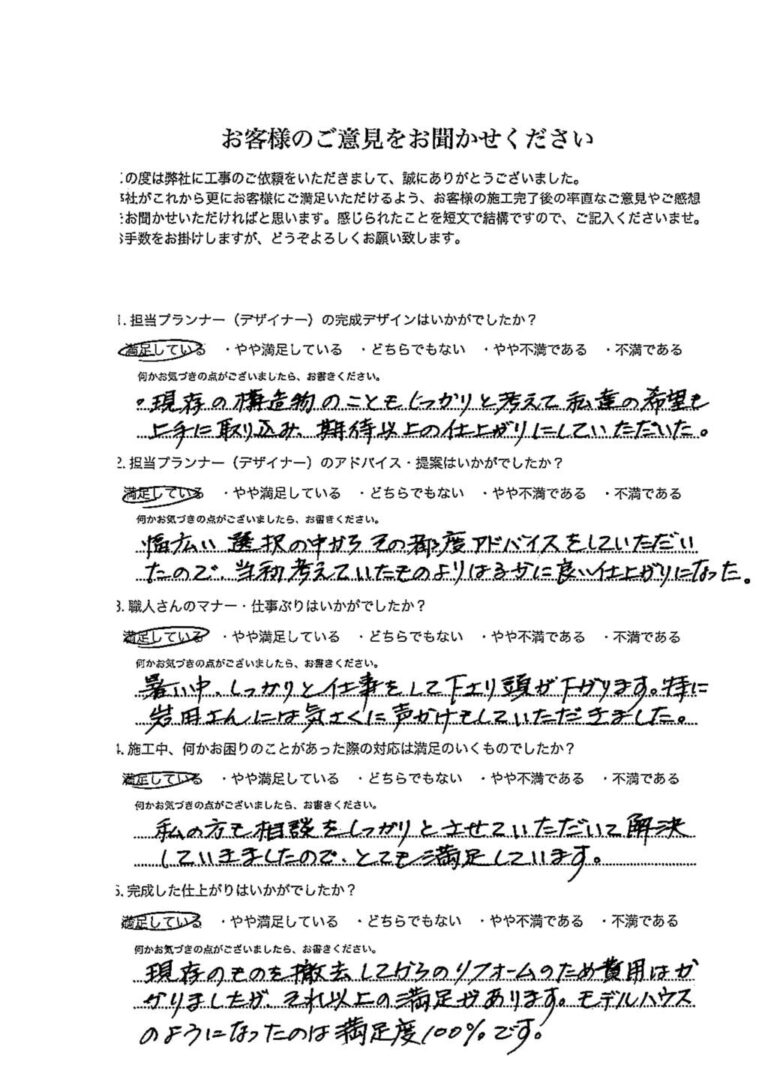 お客様のご意見をお聞かせください
の度は弊社に工事のご依頼をいただきまして、誠にありがとうございました。
社がこれから更にお客様にご満足いただけるよう、お客様の施工完了後の率直なご意見やご感想
をお聞かせいただければと思います。感じられたことを短文で結構ですので、ご記入くださいませ。
お手数をお掛けしますが、どうぞよろしくお願い致します。
1. 担当プランナー（デザイナー）の完成デザインはいかがでしたか？
満足している ・やや満足している ・どちらでもない ・やや不満である ・不満である
何かお気づきの点がございましたら、お書きください。
・現存の構造物のこともしっかりと考えて私達の希望も
上手に取り込み、期待以上の仕上がりにしていただいた。
2. 担当プランナー（デザイナー）のアドバイス・提案はいかがでしたか？
満足している ・やや満足している ・どちらでもない ・やや不満である ・不満である
何かお気づきの点がございましたら、お書きください。
幅広い選択の中からその都度アドバイスをしていただい
たので、当初考えていたものよりはるかに良い仕上がりになった。
3. 職人さんのマナー・仕事ぶりはいかがでしたか？
満足している ・やや満足している ・どちらでもない ・やや不満である ・不満である
何かお気づきの点がございましたら、お書きください。
暑い中、しっかりと仕事をして下さり頭が下がります。特に
岩田さんには気さくに声かけもしていただきました。
4. 施工中、何かお困りのことがあった際の対応は満足のいくものでしたか？
満足している ・やや満足している ・どちらでもない ・やや不満である ・不満である
何かお気づきの点がございましたら、お書きください。
私の方で相談をしっかりとさせていただいて解決
していきましたので、とても満足しています。
5. 完成した仕上がりはいかがでしたか？
満足している ・やや満足している ・どちらでもない ・やや不満である ・不満である
何かお気づきの点がございましたら、お書きください。
現存のものを撤去してからのリフォームのため費用はか
かりましたが、それ以上の満足があります。モデルハウス
のようになったのは満足度100%です。